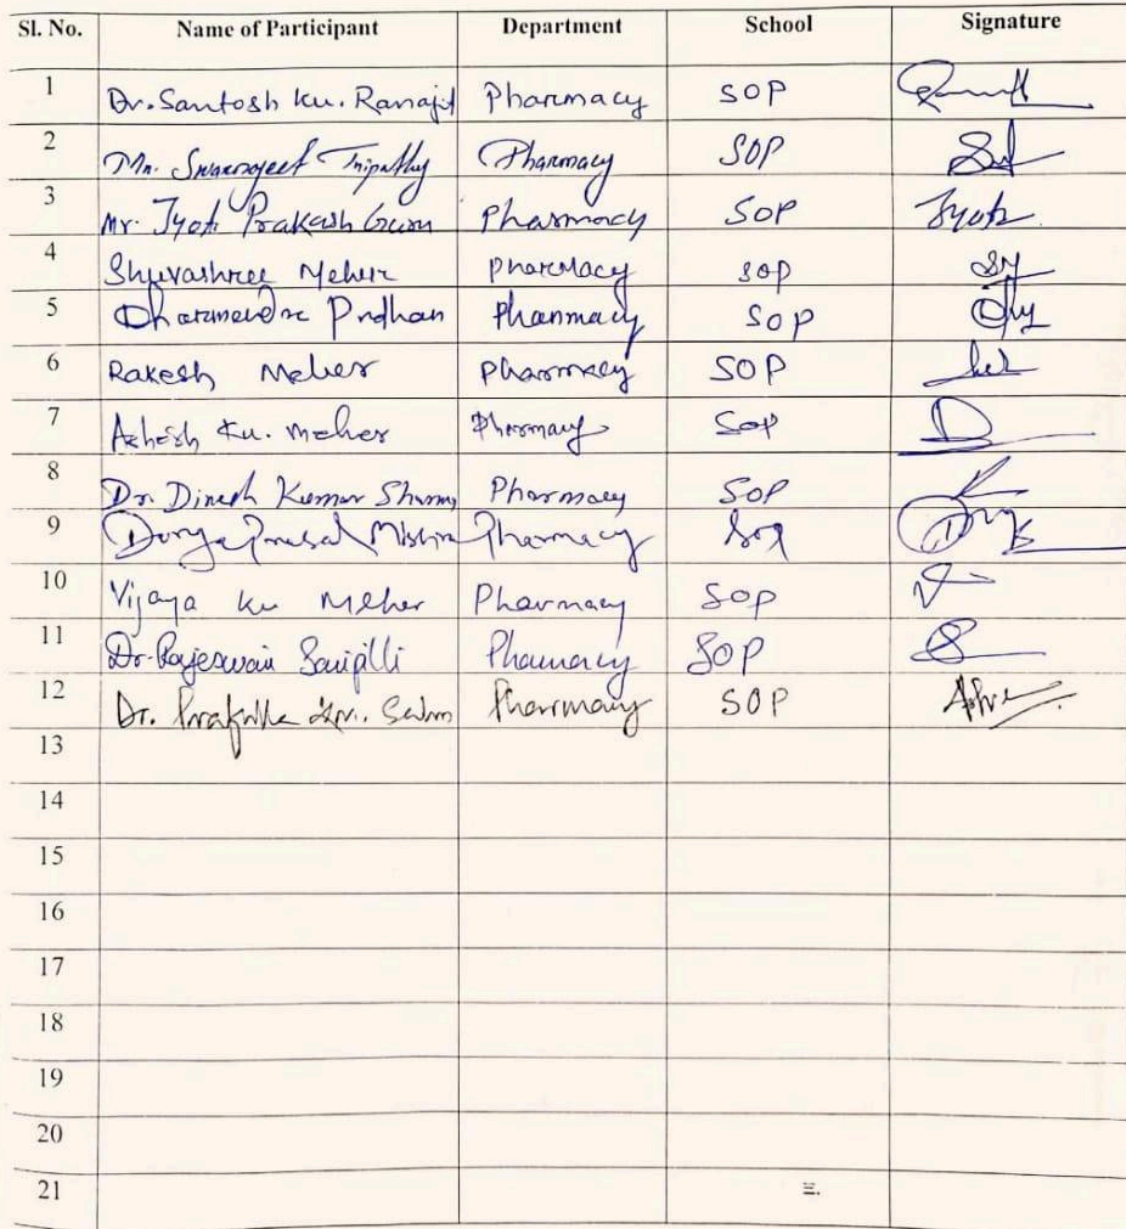 Sl. No. Name of Participant Department School Signature
1 Dr. Santosh Ku. Ranajit Pharmacy SOP
2 Mr. Swarnajeet Tripathy Pharmacy SOP
3 Mr. Jyoti Prakash Guru Pharmacy SOP Jyoti
4 Shuvashree Meher Pharmacy SOP
5 Dharmendra Pradhan Pharmacy SOP
6 Rakesh Meher Pharmacy SOP
7 Ashish Ku. Meher Pharmacy SOP
8 Dr. Dinesh Kumar Sharma Pharmacy SOP
9 Durga Prasad Mishra Pharmacy SOP
10 Vijaya Ku Meher Pharmacy SOP
11 Dr. Rajeswari Pharmacy SOP
12 Dr. Prafulla Ku. Sahu Pharmacy SOP
13
14
15
16
17
18
19
20
21